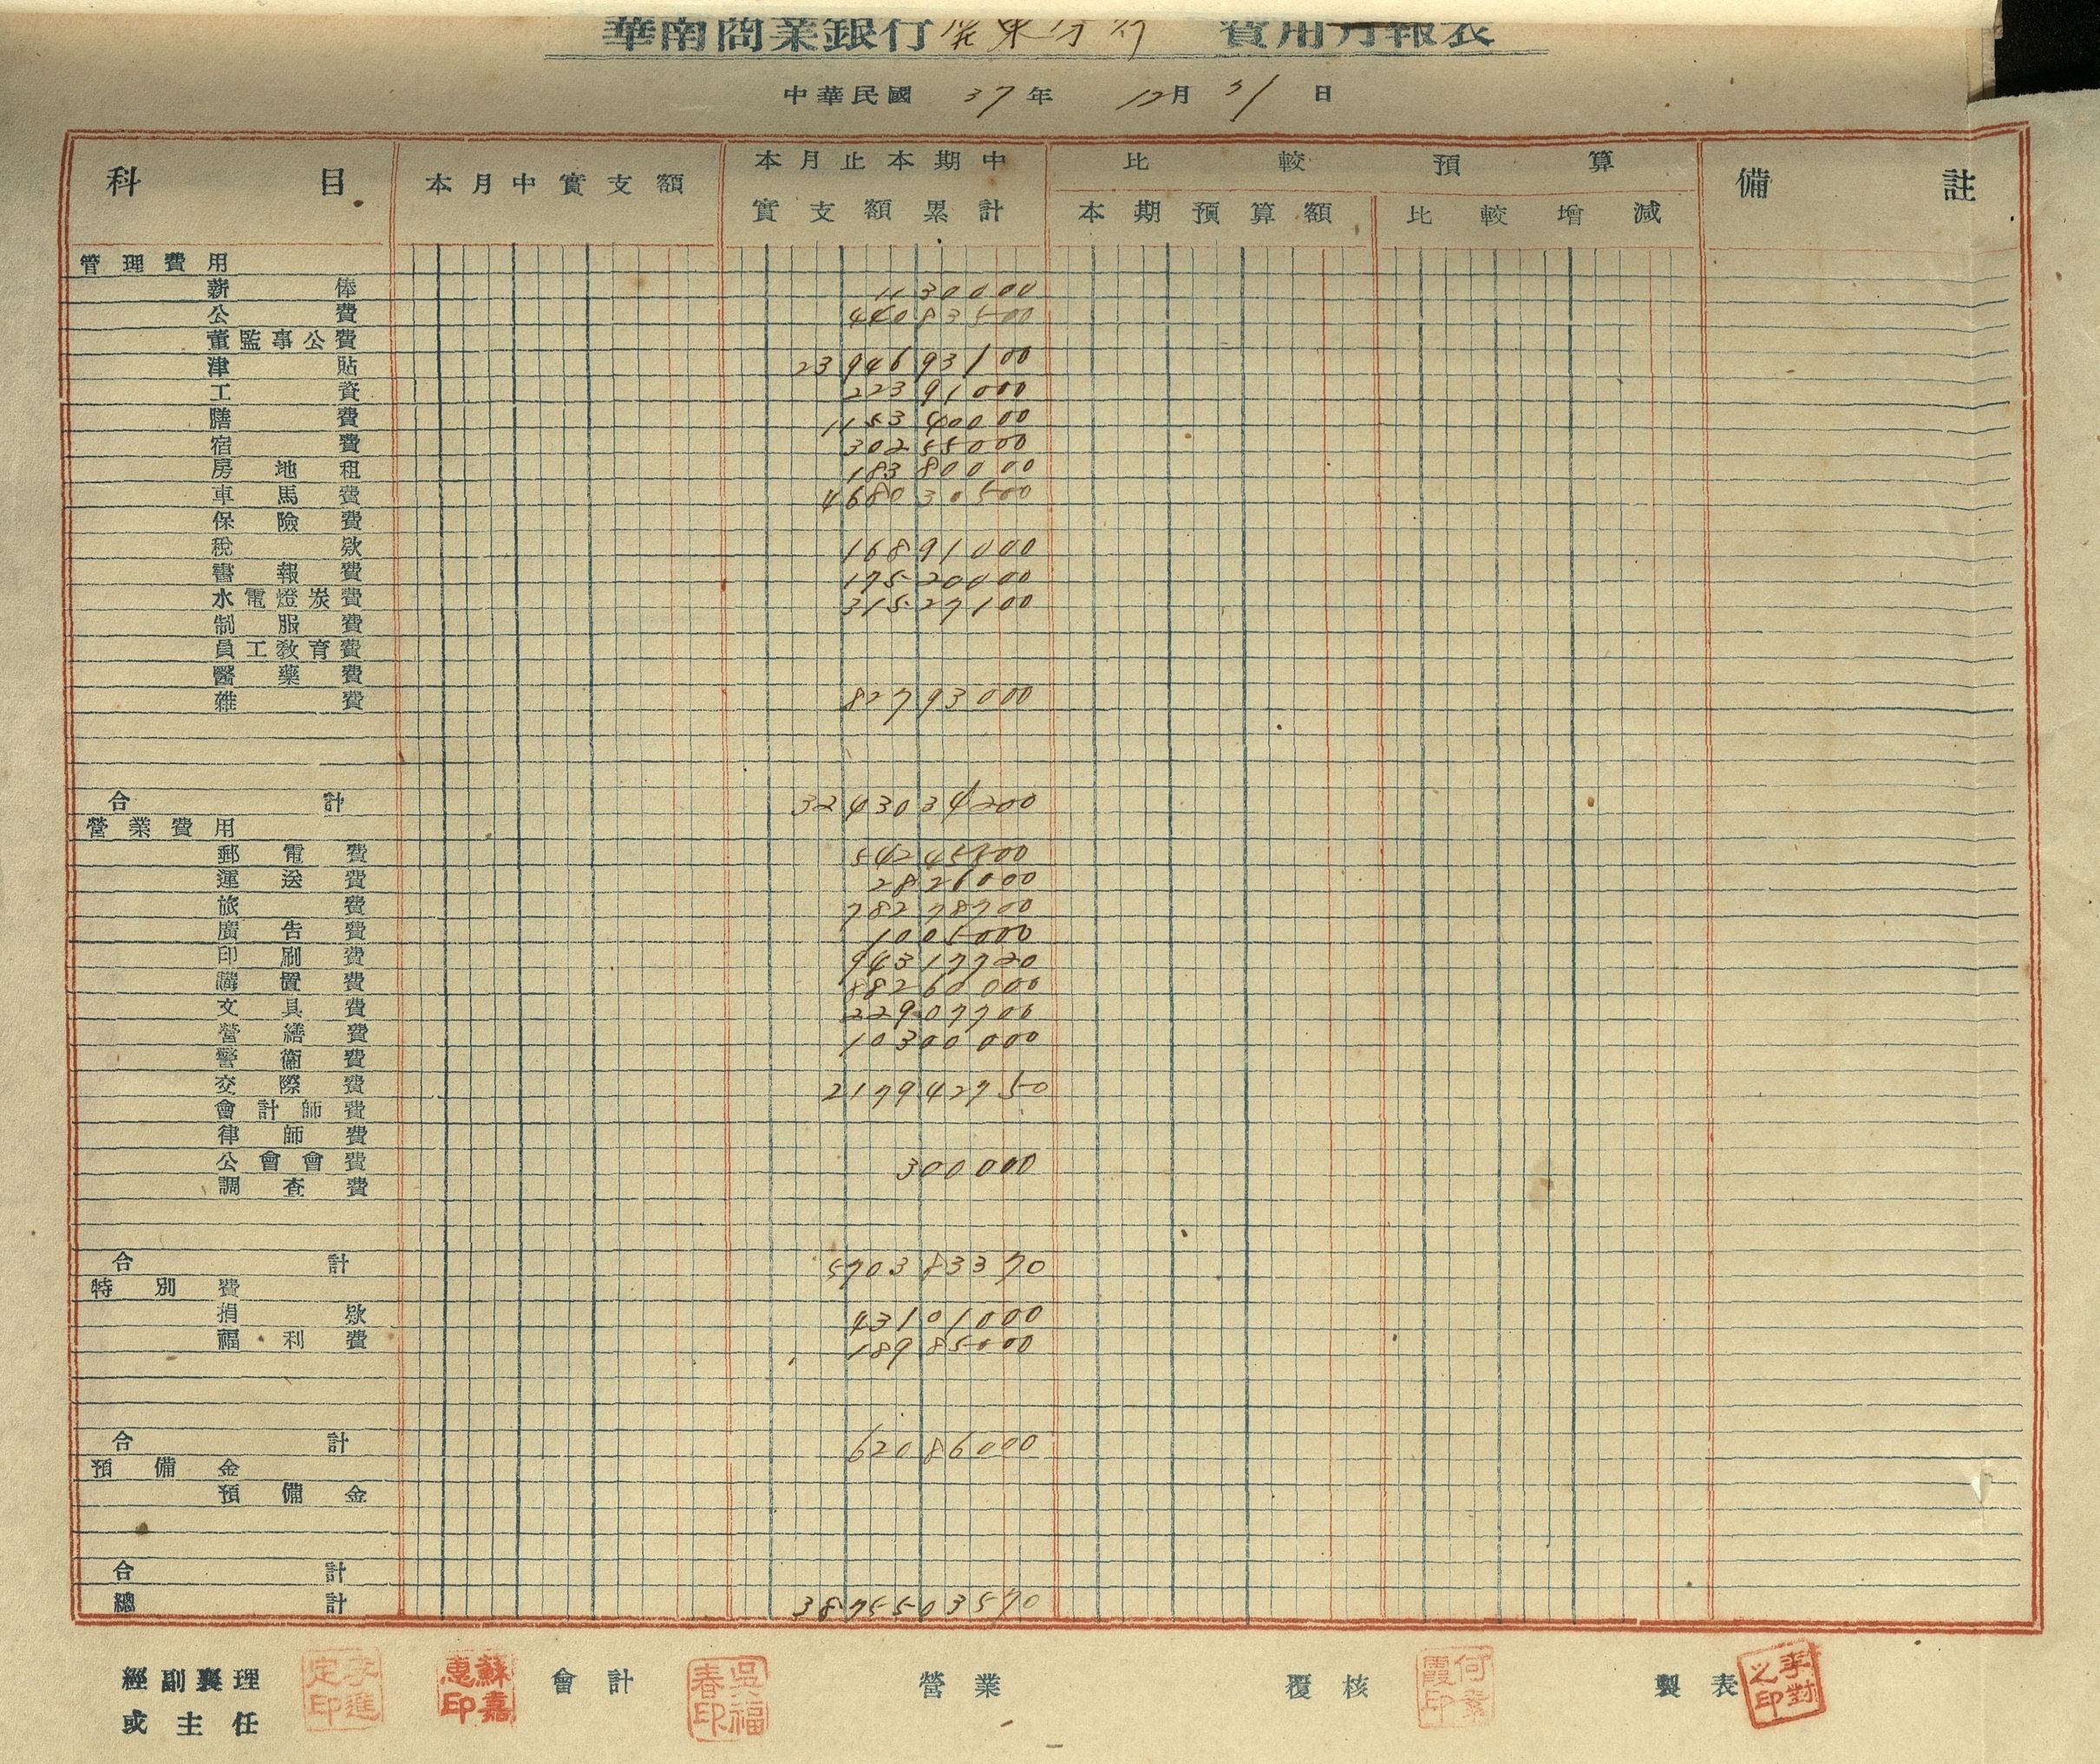 華南商業銀行 屏東分行 費用月報表
中華民國 37年 12月 31日
科目 本月中實支額 本月止本期中實支額累計 比較預算 本期預算額 比較增減 備註
管理費用
薪俸 1130000
公費 44083500
董監事公費
津貼 2394693100
工資 22391000
膳費 115340000
宿費 30255000
房地租 18380000
車馬費 468030500
保險費
稅款 16891000
書報費 17520000
水電燈炭費 31527100
制服費
員工教育費
醫藥費
雜費 82793000
合計 3243034200
營業費用
郵電費 54245800
運送費 2826000
旅費 78278700
廣告費 1005000
印刷費 94317720
購置費 88260000
文具費 22907700
營繕費 10300000
警衛費
交際費 217942750
會計師費
律師費
公會會費 300000
調查費
合計 570383370
特別費
捐款 43101000
福利費 18985000
合計 62086000
預備金
預備金
合計
總計 3875503570
經副襄理或主任 李進定印 蘇嘉惠印 會計 吳福春印 營業 覆核 製表